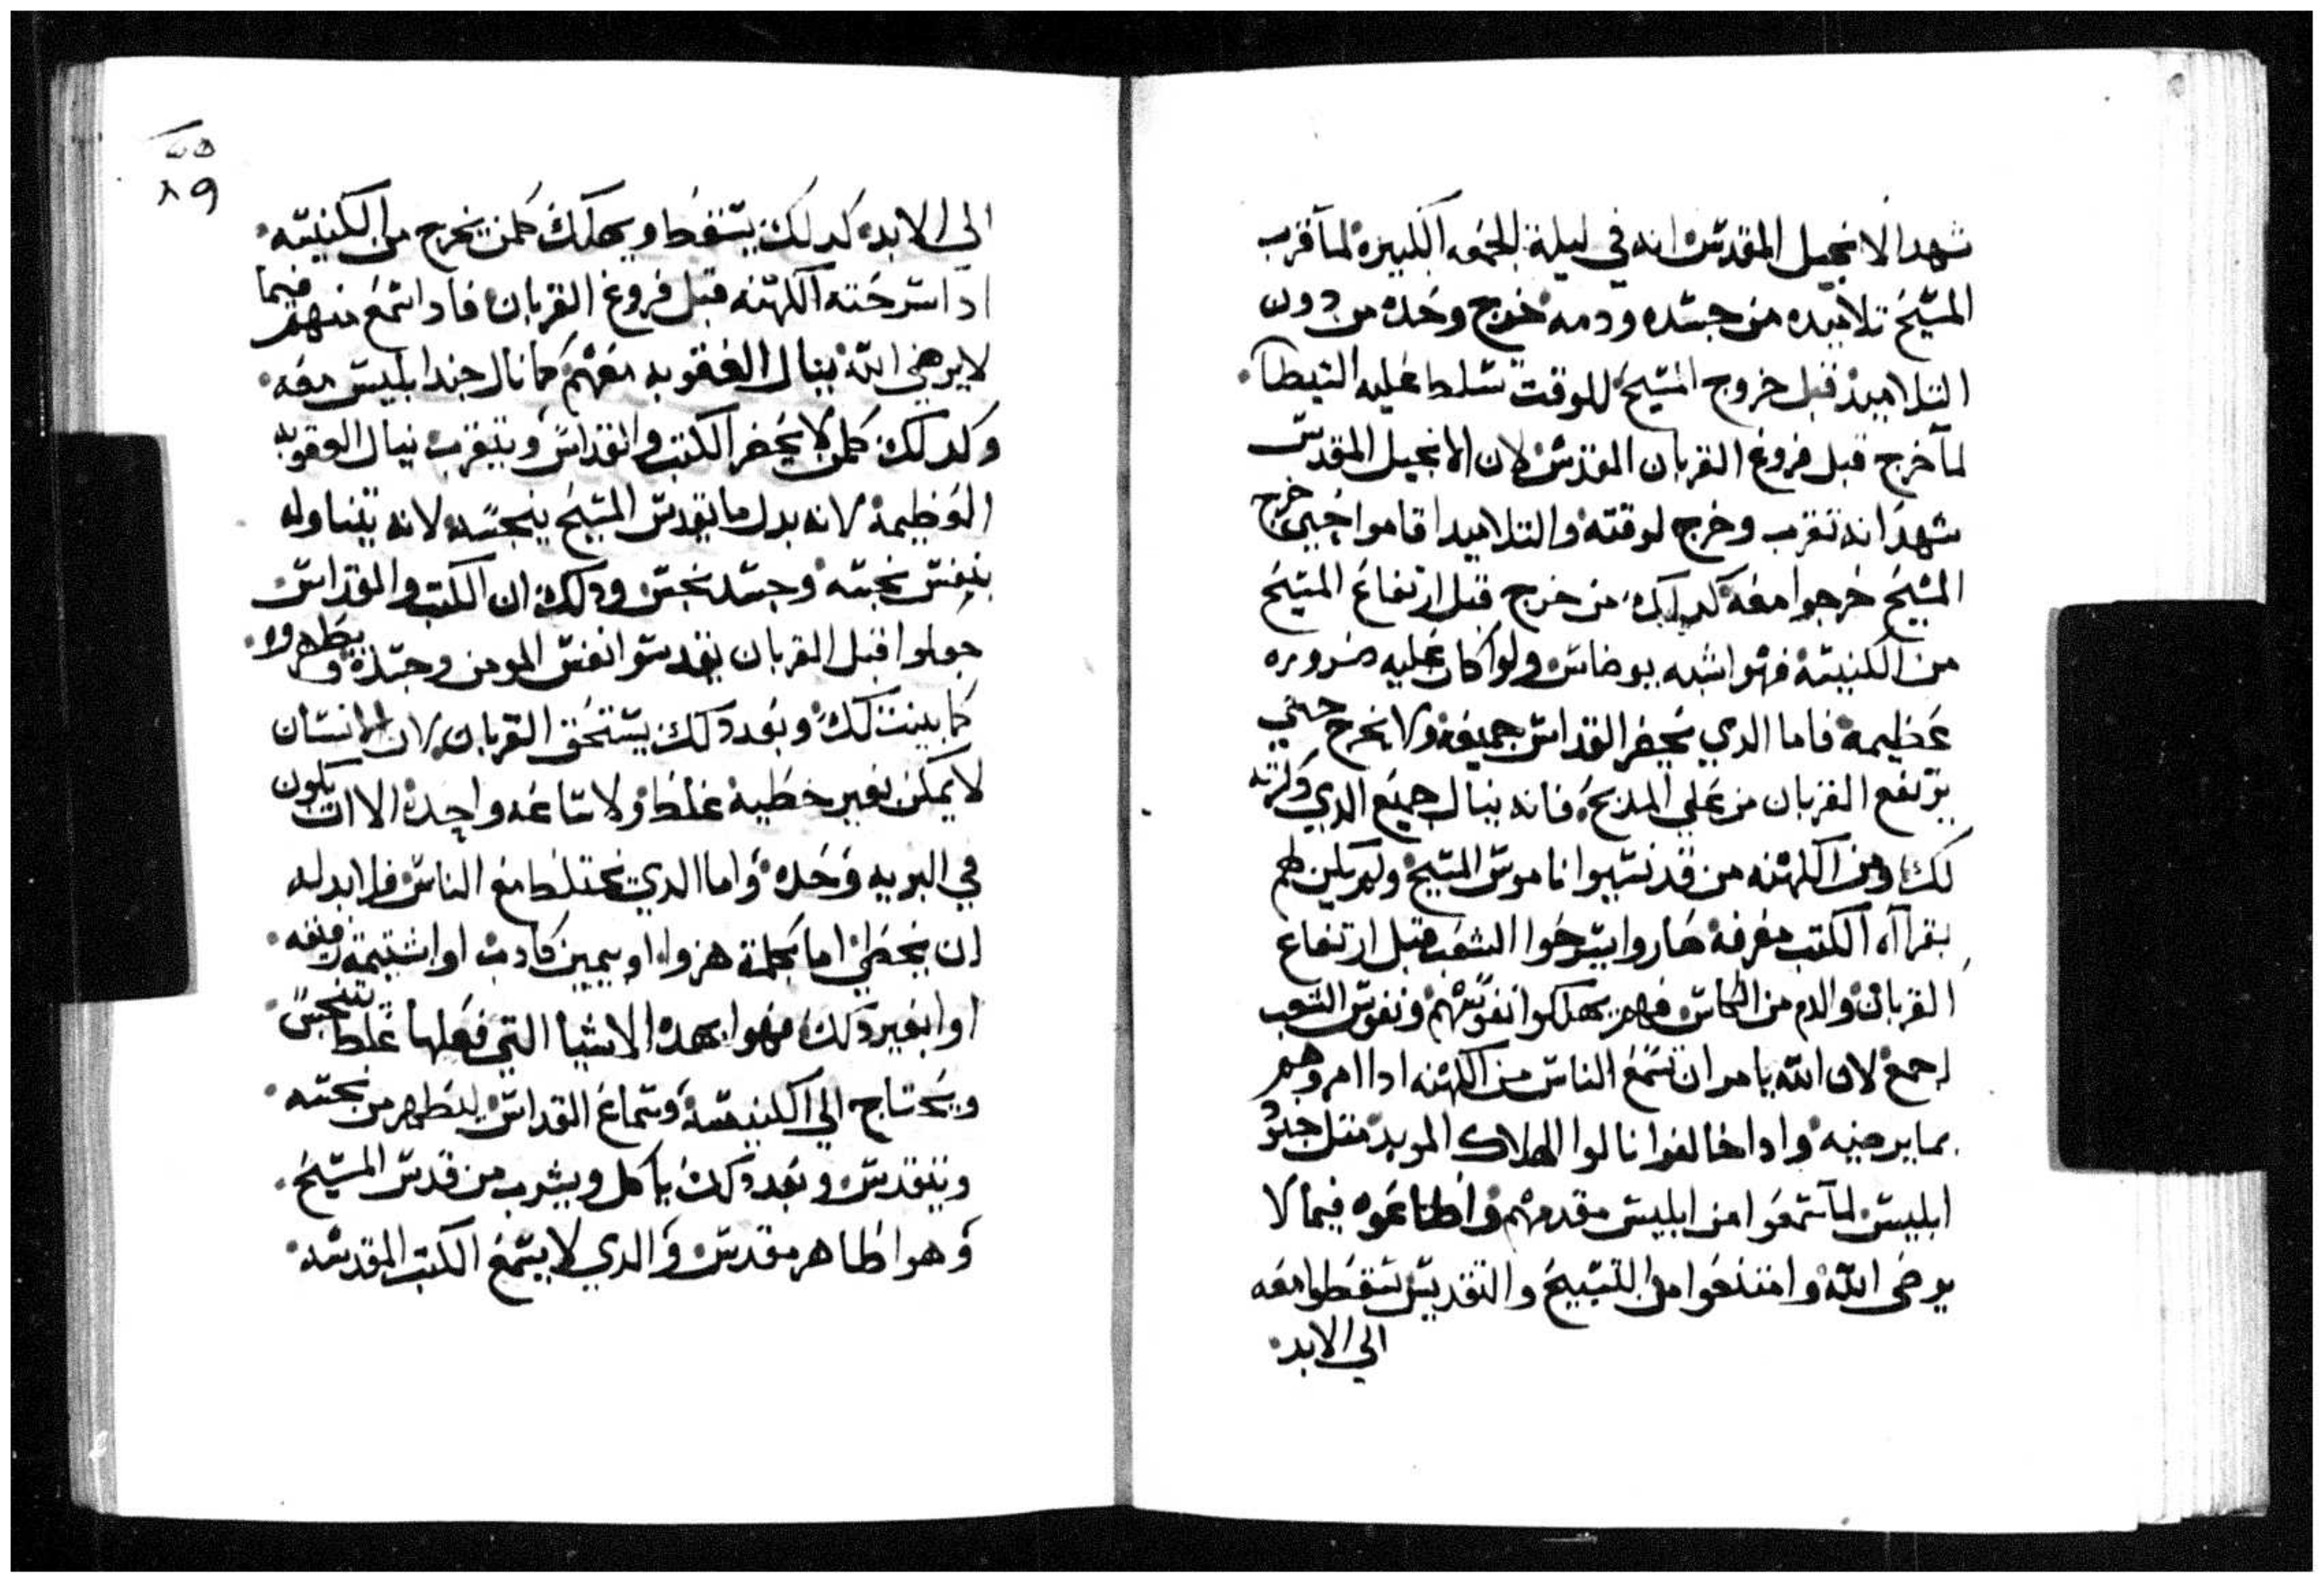 شهد الانجيل المقدس انه في ليلة الجمعه الكبيره لما قرب
المسيح تلاميده من جسده ودمه خرج وحده من دون
التلاميد قبل خروج المسيح للوقت تسلط عليه الشيطان
لما خرج قبل فروغ القربان المقدس لان الانجيل المقدس
شهد انه تقرب وخرج لوقته والتلاميد اقاموا حتي خرج
المسيح خرجوا معه كدلك من خرج قبل ارتفاع المسيح
من الكنيسه فهوا شبه يوضاس ولوا كان عليه ضروره
عظيمه فاما الدي يحضر القداس جميعه ولا يخرج حتي
يرتفع القربان من علي المدبح فانه ينال جميع الدي دكرته
لك ومن الكهنه من قد نسيوا ناموس المسيح ولم يكن لهم
بقرااه الكتب معرفه صاروا يسرحوا الشعب قبل ارتفاع
القربان والدم من الكاس فهم يهلكوا نفوسهم ونفوس الشعب
اجمع لان الله يامر ان تسمع الناس من الكهنه ادا امروهم
بما يرضيه وادا خالفوا نالوا الهلاك الموبد متل جند
ابليس لما سمعوا من ابليس مقدمهم واطاعوه فيما لا
يرضي الله وامتنعوا من التسبيح والتقديس سقطوا معه
الي الابد
٨٩
الي الابد كدلك يسقط ويهلك كلمن يخرج من الكنيسه
ادا سرحته الكهنه قبل فروغ القربان فادا سمع منهم فيما
لا يرضي الله ينال العقوبه معهم كما نال جند ابليس معه
وكدلك كلمن لا يحضر الكتب والقداس ويتقرب ينال العقوبه
العظيمه لانه بدل ما يقدس المسيح ينجسه لانه يتناوله
بنفس نجسه وجسد نجس ودلك ان الكتب والقداس
جعلوا قبل القربان يقدسوا نفس المومن وجسده ويطهروه
كما بينت لك وبعد دلك يستحق القربان لان الانسان
لا يمكن بغير خطيه غلط ولا ساعه واحده الا ان يكون
في البريه وحده واما الدي يختلط مع الناس فلا بد له
ان يخطي اما بكلمة هزوا او يمين كادب او اشتيمة رفيقه
او ابغير دلك فهوا بهده الاشيا التي فعلها غلط يتنجس
ويحتاج الي الكنيسه وسماع القداس ليتطهر من نجسه
ويتقدس وبعد دلك ياكل ويشرب من قدس المسيح
وهوا طاهر مقدس والدي لا يسمع الكتب المقدسه